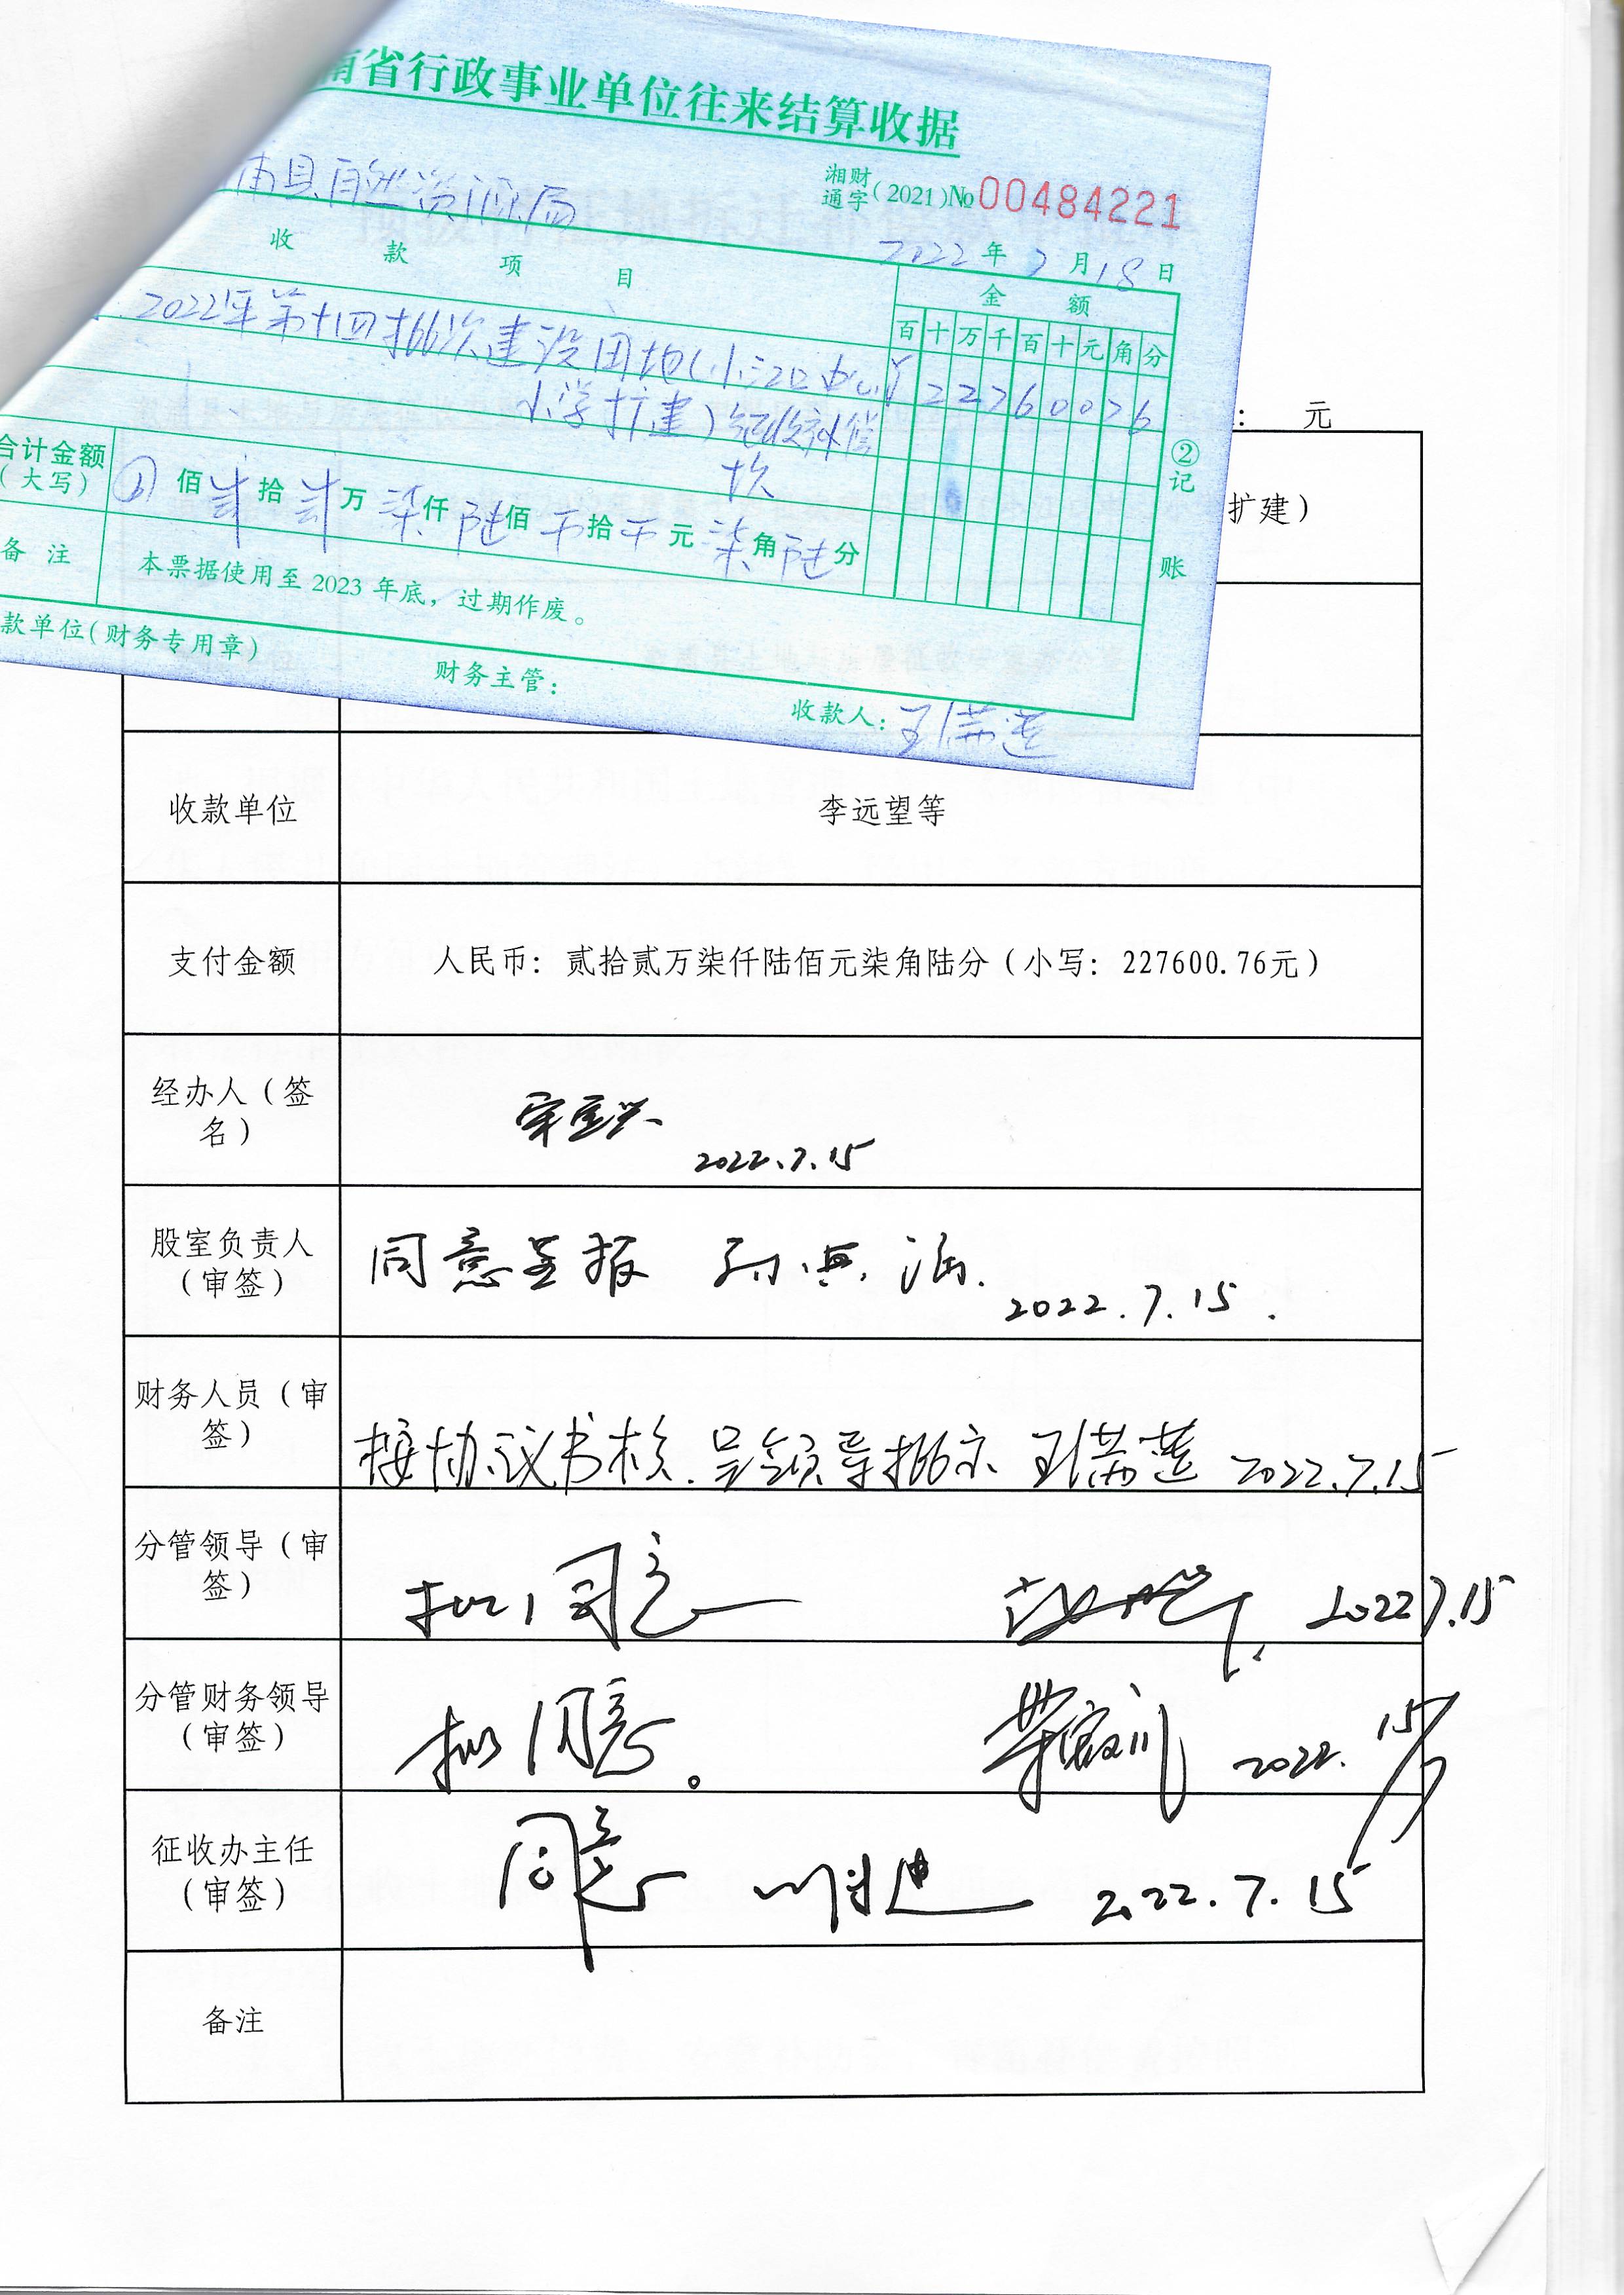 南省行政事业单位往来结算收据
湘财
通字(2021)№00484221
甫县自然资源局
2022年7月18日
收款项目
金额
百十万千百十元角分
2022年第十四批次建设用地(小江口中心
¥22760076
小学扩建)征收补偿
款
合计金额
(大写)
佰贰拾贰万柒仟陆佰零拾零元柒角陆分
②记账
备注
本票据使用至2023年底，过期作废。
款单位(财务专用章)
财务主管:
收款人:王满莲
: 元
扩建)
收款单位
李远望等
支付金额
人民币：贰拾贰万柒仟陆佰元柒角陆分（小写：227600.76元）
经办人（签
名）
2022.7.15
股室负责人
（审签）
同意呈报
2022.7.15.
财务人员（审
签）
按协议书核.呈领导批示 王满莲 2022.7.15
分管领导（审
签）
拟同意
2022.7.15
分管财务领导
（审签）
拟同意。
2022. 15/7
征收办主任
（审签）
同意
2022.7.15
备注